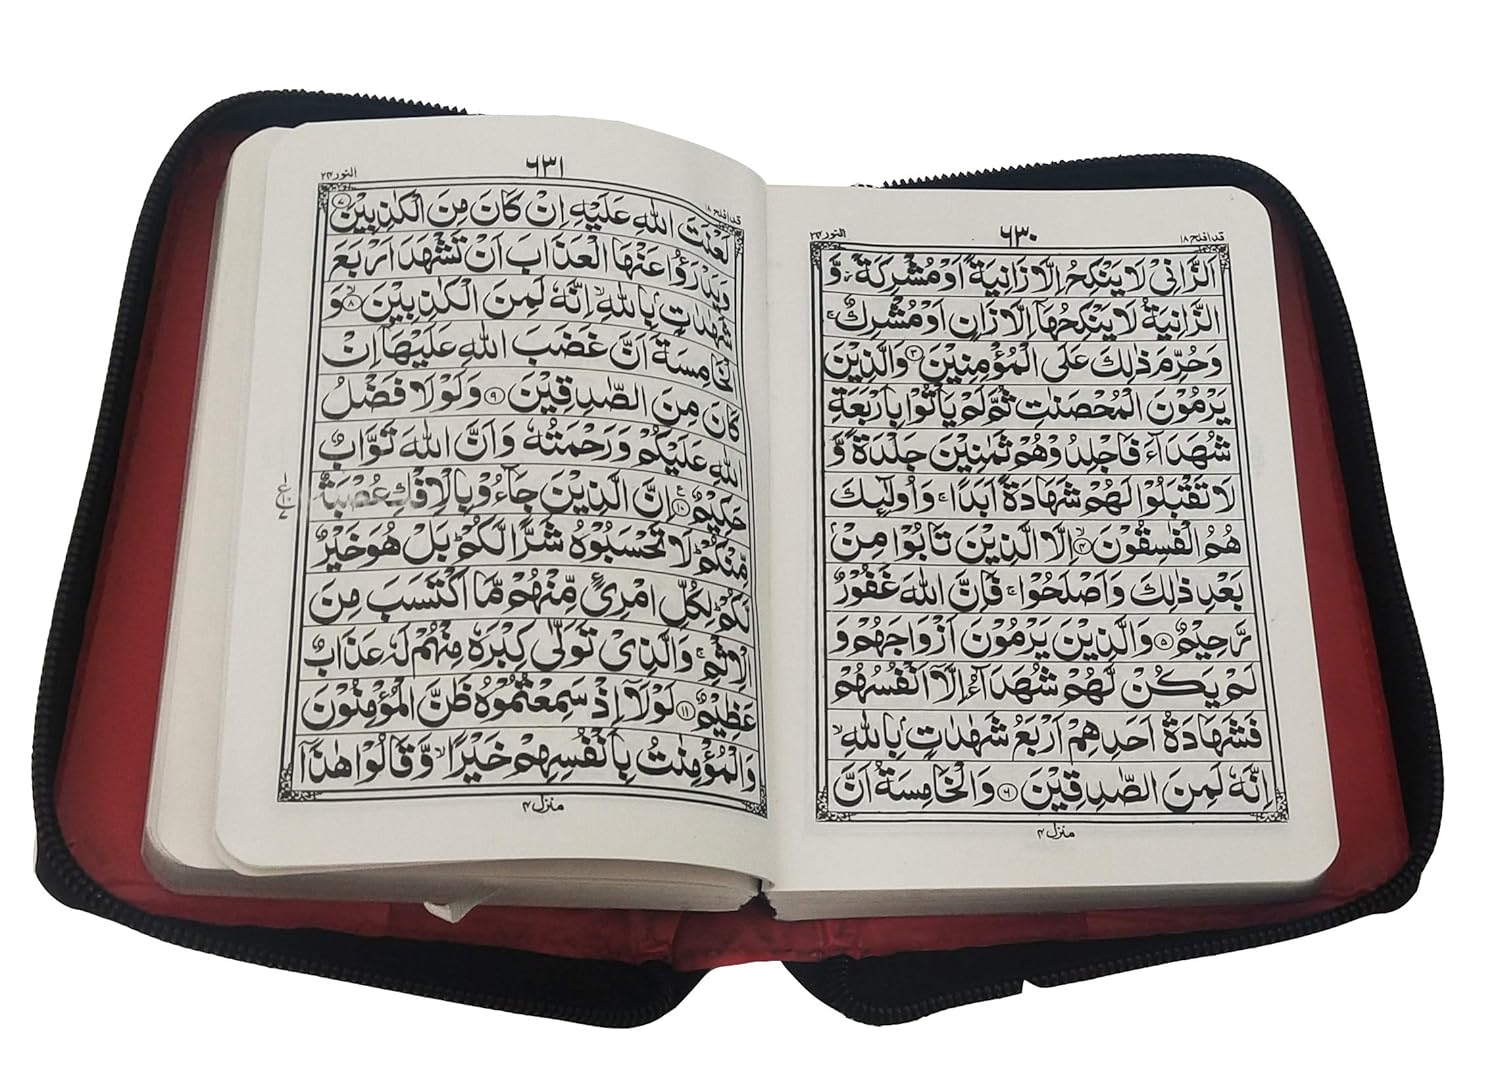 النور ٢٤
٦٣٠
قد افلح ١٨
اَلزَّانِىْ لَا يَنْكِحُ اِلَّا زَانِيَةً اَوْ مُشْرِكَةً ز وَّ
الزَّانِيَةُ لَا يَنْكِحُهَاۤ اِلَّا زَانٍ اَوْ مُشْرِكٌ ج
وَحُرِّمَ ذٰلِكَ عَلَى الْمُؤْمِنِيْنَ ﴿٣﴾ وَالَّذِيْنَ
يَرْمُوْنَ الْمُحْصَنٰتِ ثُمَّ لَمْ يَاْتُوْا بِاَرْبَعَةِ
شُهَدَآءَ فَاجْلِدُوْهُمْ ثَمٰنِيْنَ جَلْدَةً وَّ
لَا تَقْبَلُوْا لَهُمْ شَهَادَةً اَبَدًا ج وَاُولٰٓئِكَ
هُمُ الْفٰسِقُوْنَ ﴿٤﴾ اِلَّا الَّذِيْنَ تَابُوْا مِنْۢ
بَعْدِ ذٰلِكَ وَاَصْلَحُوْا ج فَاِنَّ اللّٰهَ غَفُوْرٌ
رَّحِيْمٌ ﴿٥﴾ وَالَّذِيْنَ يَرْمُوْنَ اَزْوَاجَهُمْ وَ
لَمْ يَكُنْ لَّهُمْ شُهَدَآءُ اِلَّاۤ اَنْفُسُهُمْ
فَشَهَادَةُ اَحَدِهِمْ اَرْبَعُ شَهٰدٰتٍۭ بِاللّٰهِ لا
اِنَّهٗ لَمِنَ الصّٰدِقِيْنَ ﴿٦﴾ وَالْخَامِسَةُ اَنَّ
منزل ٤
النور ٢٤
٦٣١
قد افلح ١٨
لَعْنَتَ اللّٰهِ عَلَيْهِ اِنْ كَانَ مِنَ الْكٰذِبِيْنَ ﴿٧﴾
وَيَدْرَؤُا عَنْهَا الْعَذَابَ اَنْ تَشْهَدَ اَرْبَعَ
شَهٰدٰتٍۭ بِاللّٰهِ لا اِنَّهٗ لَمِنَ الْكٰذِبِيْنَ ﴿٨﴾ لا وَ
الْخَامِسَةَ اَنَّ غَضَبَ اللّٰهِ عَلَيْهَاۤ اِنْ
كَانَ مِنَ الصّٰدِقِيْنَ ﴿٩﴾ وَلَوْلَا فَضْلُ
اللّٰهِ عَلَيْكُمْ وَرَحْمَتُهٗ وَاَنَّ اللّٰهَ تَوَّابٌ
حَكِيْمٌ ﴿١٠﴾ ع اِنَّ الَّذِيْنَ جَآءُوْ بِالْاِفْكِ عُصْبَةٌ
مِّنْكُمْ ط لَا تَحْسَبُوْهُ شَرًّا لَّكُمْ ط بَلْ هُوَ خَيْرٌ
لَّكُمْ ط لِكُلِّ امْرِئٍ مِّنْهُمْ مَّا اكْتَسَبَ مِنَ
الْاِثْمِ ج وَالَّذِىْ تَوَلّٰى كِبْرَهٗ مِنْهُمْ لَهٗ عَذَابٌ
عَظِيْمٌ ﴿١١﴾ لَوْلَاۤ اِذْ سَمِعْتُمُوْهُ ظَنَّ الْمُؤْمِنُوْنَ
وَالْمُؤْمِنٰتُ بِاَنْفُسِهِمْ خَيْرًا لا وَّقَالُوْا هٰذَاۤ
منزل ٤